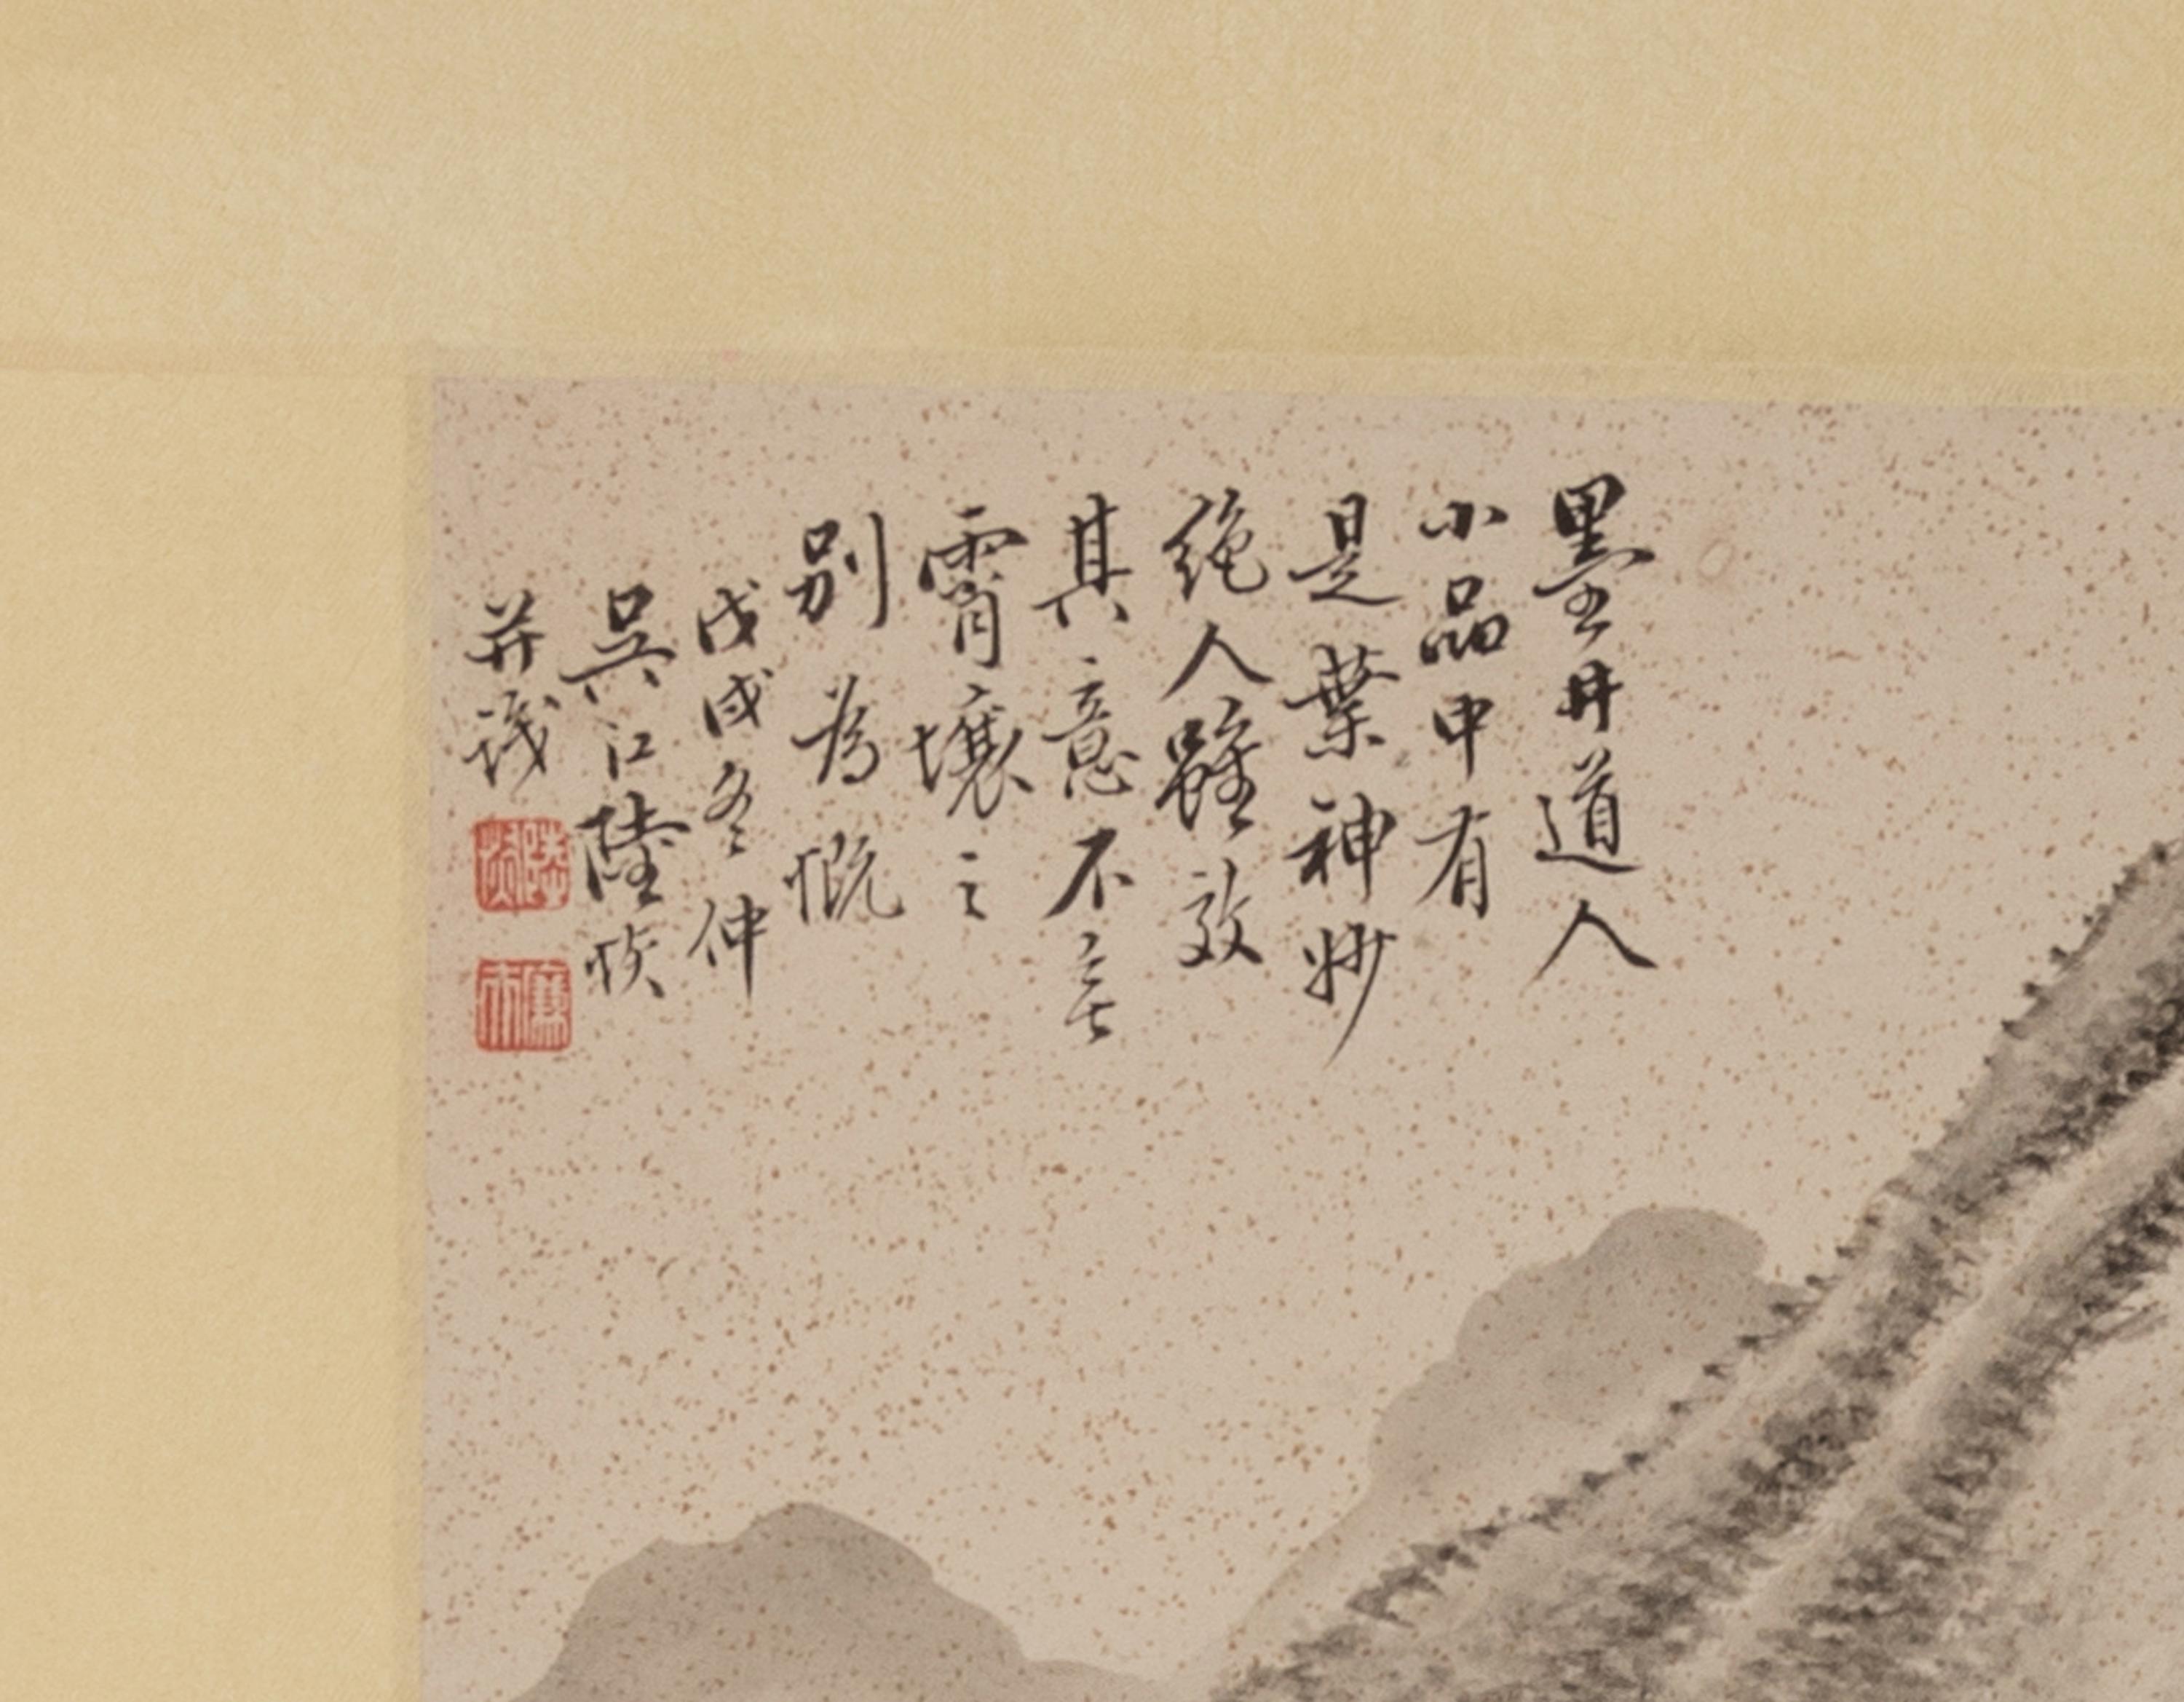 墨井道人
小品中有
是葉神妙
絶人雖效
其意不無
霄壤之
別為慨
戊戌冬仲
吳江陸恢
并識
陸恢
廉夫